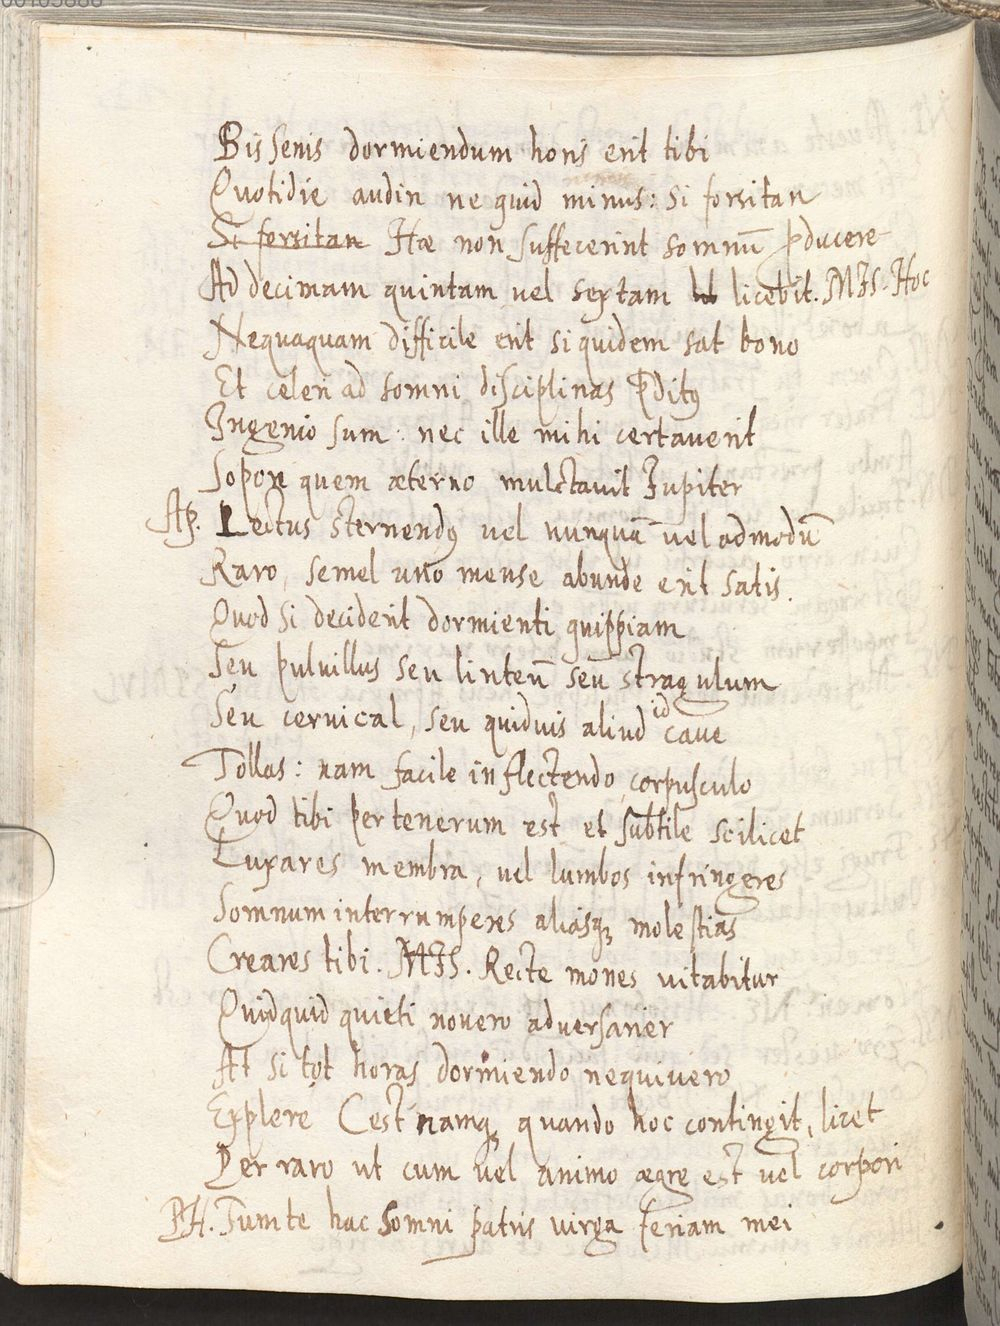 Bis senis dormiendum horis erit tibi
Quotidie audin ne quid minus: si forsitan
Si forsitan Hæ non suffecerint somnū ꝓducere
Ad decimam quintam vel sextam licebit. MIS. Hoc
Nequaquam difficile erit siquidem sat bono
Et celeri ad somni disciplinas p̄ditꝰ
Ingenio sum: nec ille mihi certaverit
Sopore quem æterno mulctavit Iupiter
Lectus sternendꝰ vel nunquā vel admodū
Raro, semel uno mense abunde erit satis.
Quod si deciderit dormienti quippiam
Seu pulvillus seu linteū seu stragulum
Seu cervical, seu quidvis aliud id cave
Tollas: nam facile inflectendo corpusculo
Quod tibi pertenerum est et subtile scilicet
Luxares membra, vel lumbos infringeres
Somnum interrumperes aliasqꝫ molestias
Creares tibi. MIS. Recte mones vitabitur
Quidquid quieti novero adversarier
At si tot horas dormiendo nequivero
Explere (est namqꝫ quando hoc contingit, licet
Per raro ut cum vel animo ægre est vel corpori
PH. Tum te hac somni patris virga feriam mei